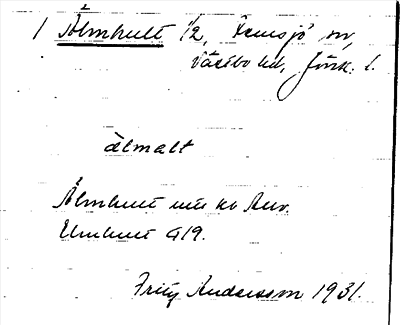 1 Älmhult 1/2, Femsjö sn,
Västbo hd, Jönk. l.
älmalt
Älmhult
Elmhult 419.
Fritz Andersson 1931.